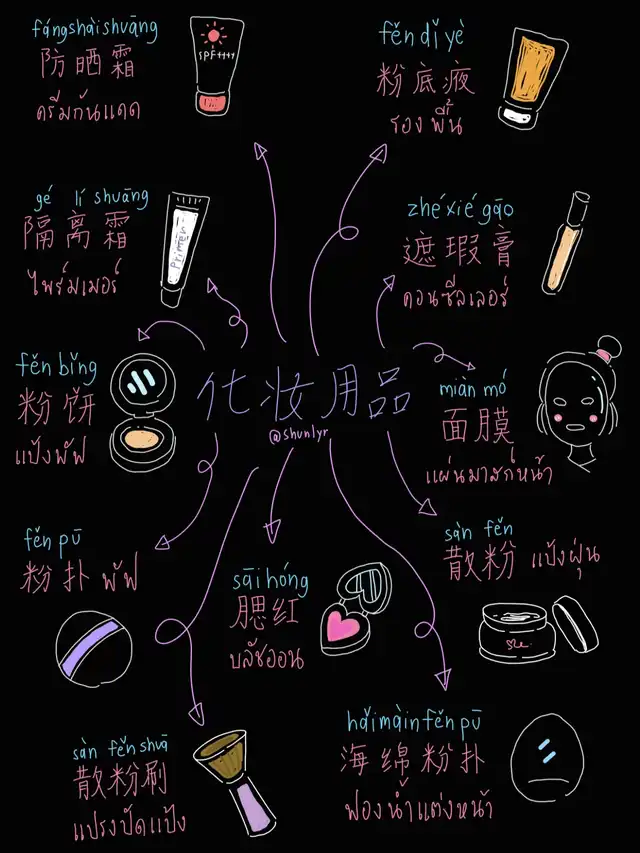 fángshàishuāng
防晒霜
ครีมกันแดด
SPF++++
fěn dǐ yè
粉底液
รองพื้น
gé lí shuāng
隔离霜
ไพร์มเมอร์
Primer
zhé xié gāo
遮瑕膏
คอนซีลเลอร์
fěn bǐng
粉饼
แป้งพัฟ
化妆用品
@shunlyr
miàn mó
面膜
แผ่นมาสก์หน้า
fěn pū
粉扑 พัฟ
sāi hóng
腮红
บลัชออน
sàn fěn
散粉 แป้งฝุ่น
sàn fěn shuā
散粉刷
แปรงปัดแป้ง
hǎi màin fěn pū
海绵粉扑
ฟองน้ำแต่งหน้า